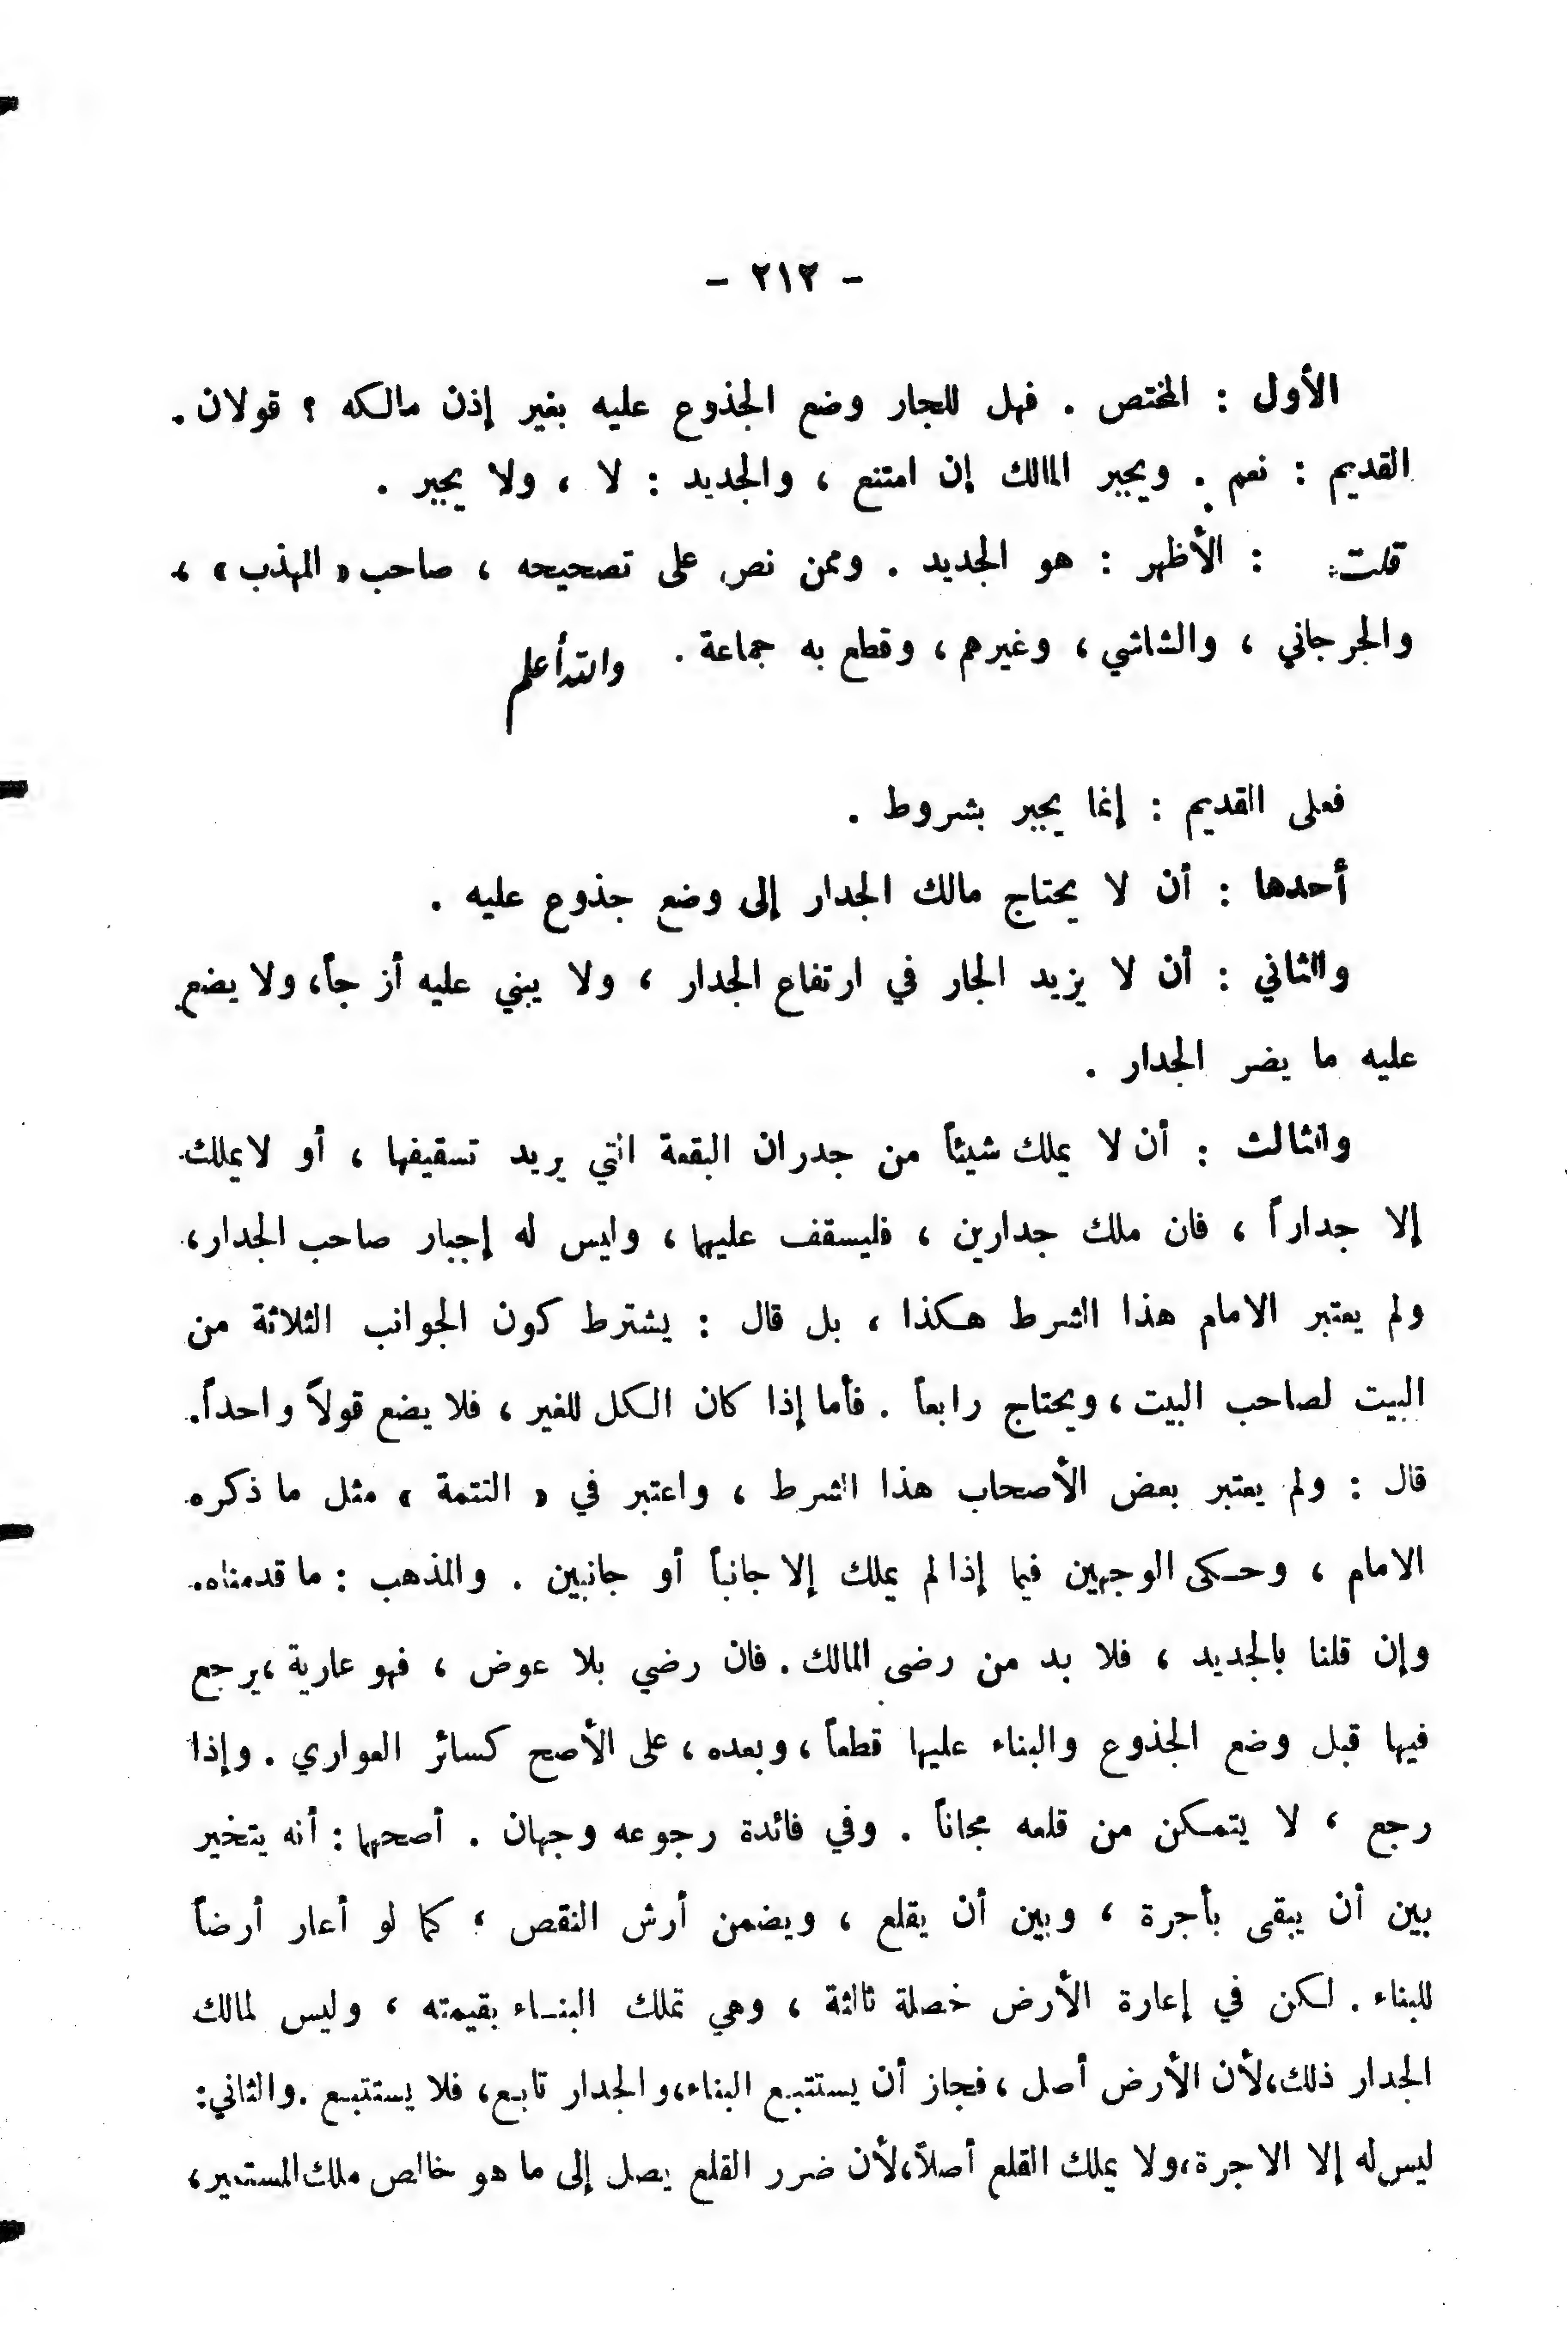 - ٢١٢ -
الأول : المختص . فهل للجار وضع الجذوع عليه بغير إذن مالكه ؟ قولان .
القديم : نعم . ويجبر المالك إن امتنع ، والجديد : لا ، ولا يجبر .
قلت : الأظهر : هو الجديد . وممن نص على تصحيحه ، صاحب « المهذب » ،
والجرجاني ، والشاشي ، وغيرهم ، وقطع به جماعة . والله أعلم
فعلى القديم : إنما يجبر بشروط .
أحدها : أن لا يحتاج مالك الجدار إلى وضع جذوع عليه .
والثاني : أن لا يزيد الجار في ارتفاع الجدار ، ولا يبني عليه أزجاً ، ولا يضع
عليه ما يضر الجدار .
والثالث : أن لا يملك شيئاً من جدران البقعة التي يريد تسقيفها ، أو لا يملك
إلا جداراً ، فان ملك جدارين ، فليسقف عليهما ، وليس له إجبار صاحب الجدار ،
ولم يعتبر الامام هذا الشرط هكذا ، بل قال : يشترط كون الجوانب الثلاثة من
البيت لصاحب البيت ، ويحتاج رابعاً . فأما إذا كان الكل للغير ، فلا يضع قولاً واحداً .
قال : ولم يعتبر بعض الأصحاب هذا الشرط ، واعتبر في « التتمة » مثل ما ذكره
الامام ، وحكى الوجهين فيما إذا لم يملك إلا جانباً أو جانبين . والمذهب : ما قدمناه .
وإن قلنا بالجديد ، فلا بد من رضى المالك . فان رضي بلا عوض ، فهو عارية ، يرجع
فيها قبل وضع الجذوع والبناء عليها قطعاً ، وبعده ، على الأصح كسائر العواري . وإذا
رجع ، لا يتمكن من قلعه مجاناً . وفي فائدة رجوعه وجهان . أصحهما : أنه يتخير
بين أن يبقى بأجرة ، وبين أن يقلع ، ويضمن أرش النقص ، كما لو أعار أرضاً
للبناء . لكن في إعارة الأرض خصلة ثالثة ، وهي تملك البناء بقيمته ، وليس لمالك
الجدار ذلك ، لأن الأرض أصل ، فجاز أن يستتبع البناء ، والجدار تابع ، فلا يستتبع . والثاني :
ليس له إلا الاجرة ، ولا يملك القلع أصلاً ، لأن ضرر القلع يصل إلى ما هو خالص ملك المستعير ،